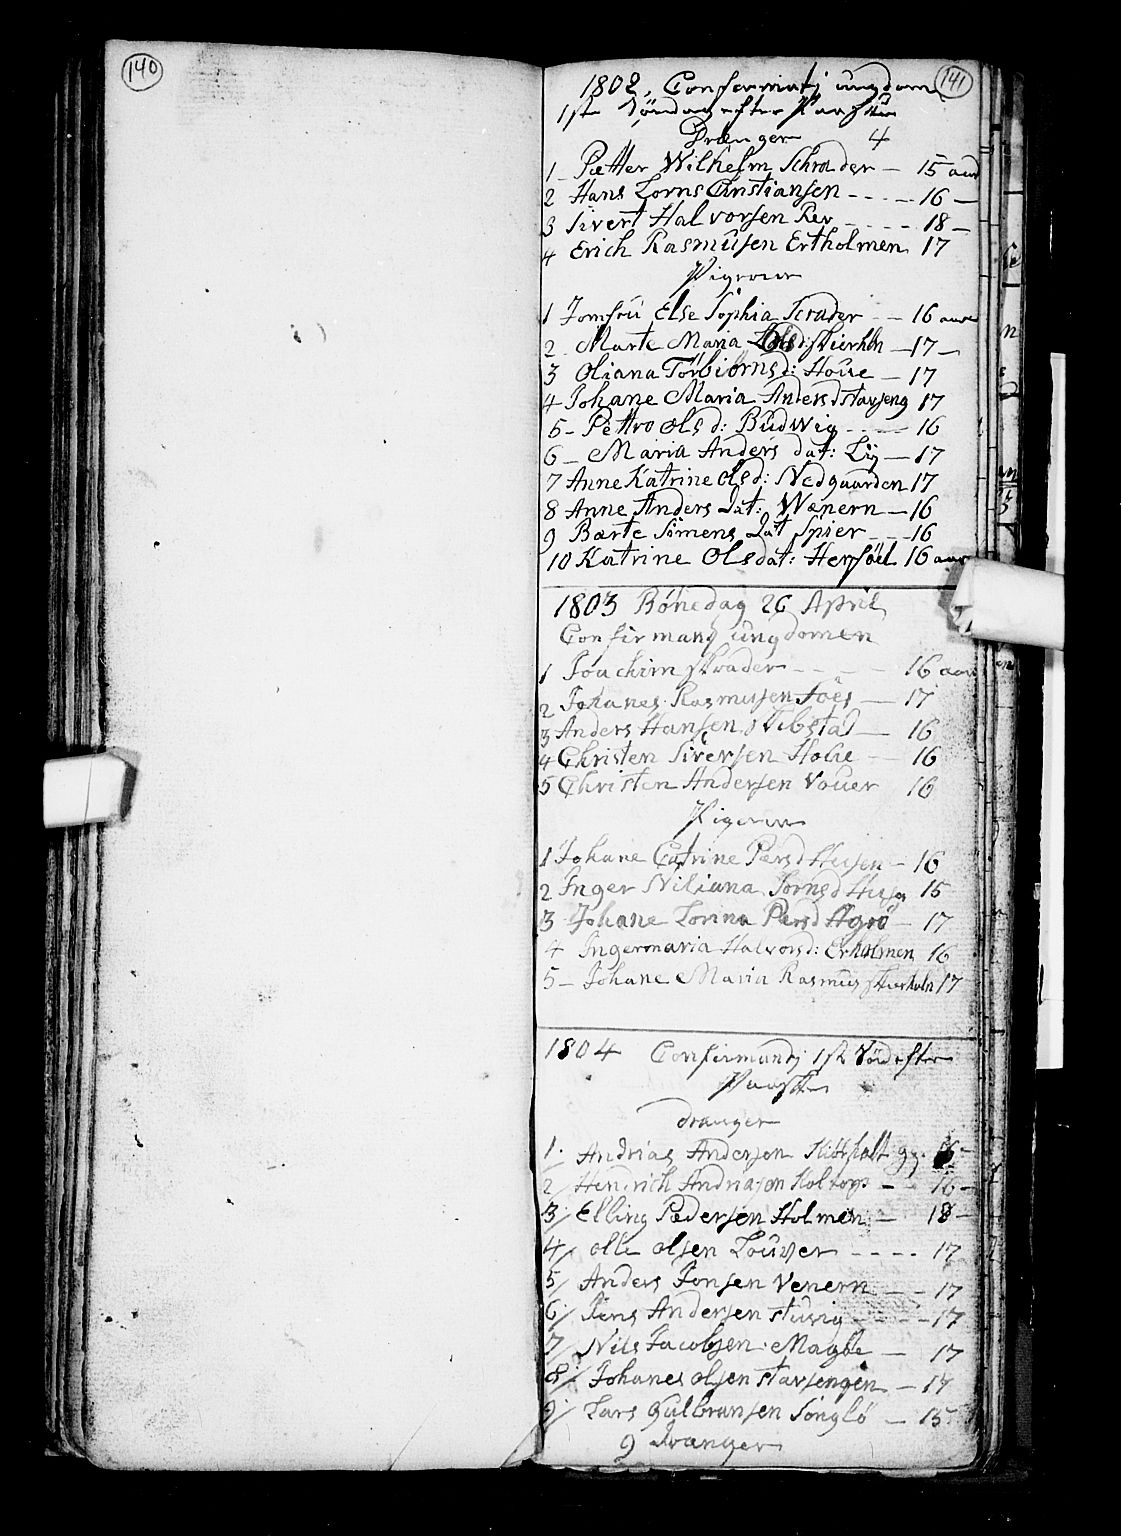 140
141
1802, Confermantj ungdom
1ste Söndag efter Paaske
Drænger 4
1 Petter Wilhelm Schrader — 15 aar
2 Hans Lorns Christiansen - - - - 16 —
3 Sivert Halvorsen Rev - - - - 18 —
4 Erich Rasmusen Ertholmen 17
Pigerne
1 Jomfru Else Sophia Scrader - - 16 aar
2 Marte Maria Olsd: skierholn — 17 —
3 Oliana Törbiörnsd: Houe — 17
4 Johane Maria Andersd Stavseng 17
5 — Pettro Olsd: Budwig - - - - 16
6 — Maria Anders dat: Lij — 17
7 Anne Katrine Olsd: Nedgaarden 17
8 Anne Anders Dat: Wænern — 16
9 Bærte Simens Dat Spier - - - 16
10 Katrine Olsdat: Hersöel 16 aar
1803 Bönedag 26 April
Confirmantj ungdomen
1 Joachim skrader - - - - 16 aar
2 Johanes Rasmusen Foes — 17
3 Anders Hansen Wibstad — 16
4 Christen Siversen Houe — 16
5 Christen Andersen Vouer 16
Pigerne
1 Johane Catrine Persd Husen — 16
2 Inger Niliana Jornsd Husen 15
3 Johane Lorina Persd Agrö 17
4 Ingermaria Halvorsd: Erholmen 16
5 — Johane Maria Rasmus skierholn 17
1804 Confirmantj 1ste Sönd efter
Paaske
dranger
1. Andrias Andersen 16 —
2/ Hendrich Andriasen Holtorp — 16 —
3/ Elling Pedersen Holmen — 18 —
4/ olle olsen Louver - - - - 17
5/ Anders Jonsen Venern - - 17
6/ Jens Andersen stuvig - - - - 17
7/ Nils Jacobsen Magöe — 17
8/ Johanes olsen stavsengen — 17
9/ Lars Gulbransen Singlö — 15
9 dranger